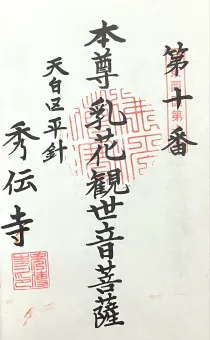 第十番
本尊 乳花観世音菩薩
天白区平針
秀伝寺